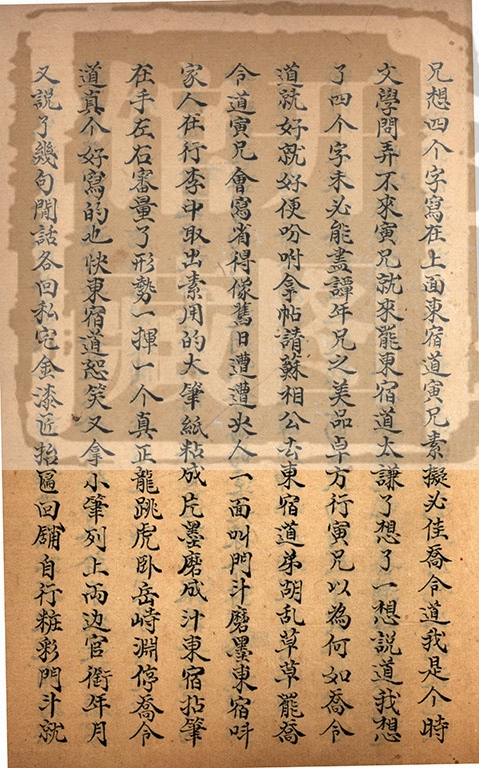 兄想四个字寫在上面東宿道寅兄素擬必佳喬令道我是个時
文學問弄不來寅兄就來罷東宿道太謙了想了一想説道我想
了四个字未必能盡譚年兄之美品卓方行寅兄以為何如喬令
道就好就好便吩咐拿帖請蘇相公去東宿道弟胡乱草草罷喬
令道寅兄會寫省得像舊日遭遭央人一面叫門斗磨墨東宿呌
家人在行李中取出素用的大筆紙粘成片墨磨成汁東宿拈筆
在手左右審量了形勢一揮一个真正龍跳虎卧岳峙淵停喬令
道真个好寫的也快東宿道恕笑又拿小筆列上兩边官銜年月
又說了幾句閒話各回私宅金漆匠抬匾回舖自行粧彩門斗就